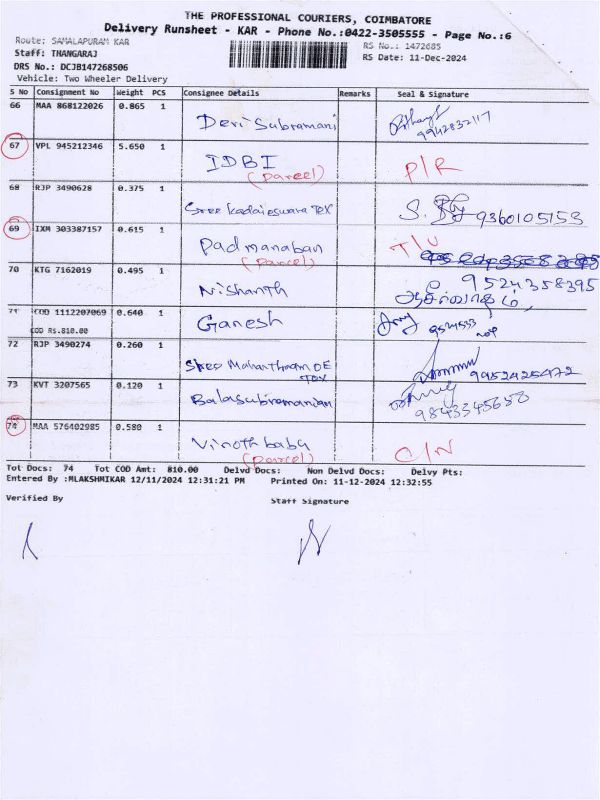 THE PROFESSIONAL COURIERS, COIMBATORE
Delivery Runsheet - KAR - Phone No.:0422-3505555 - Page No.:6
Route: SAMALAPURAM KAR
RS No.: 1472685
Staff: THANGARAJ
RS Date: 11-Dec-2024
DRS No.: DCJB147268506
Vehicle: Two Wheeler Delivery
S No Consignment No Weight PCS Consignee Details Remarks Seal & Signature
66 MAA 868122026 0.865 1 Devi Subramani 9942832117
67 VPL 945212346 5.650 1 IDBI P/R
(parcel)
68 RJP 3490628 0.375 1 Sree Kadaieswara Tex S. 9360105153
69 IXM 303387157 0.615 1 Padmanaban T/U
(parcel)
70 KTG 7162019 0.495 1 Nishanth 9524358395
71 COD 1112207069 0.640 1 Ganesh
COD Rs.810.00
72 RJP 3490274 0.260 1 Sree Mahantham OE 9952425472
Tex
73 KVT 3207565 0.120 1 Balasubramanian 9843345650
74 MAA 576402985 0.580 1 Vinothbabu C/N
(parcel)
Tot Docs: 74 Tot COD Amt: 810.00 Delvd Docs: Non Delvd Docs: Delvy Pts:
Entered By :MLAKSHMIKAR 12/11/2024 12:31:21 PM Printed On: 11-12-2024 12:32:55
Verified By Staff Signature